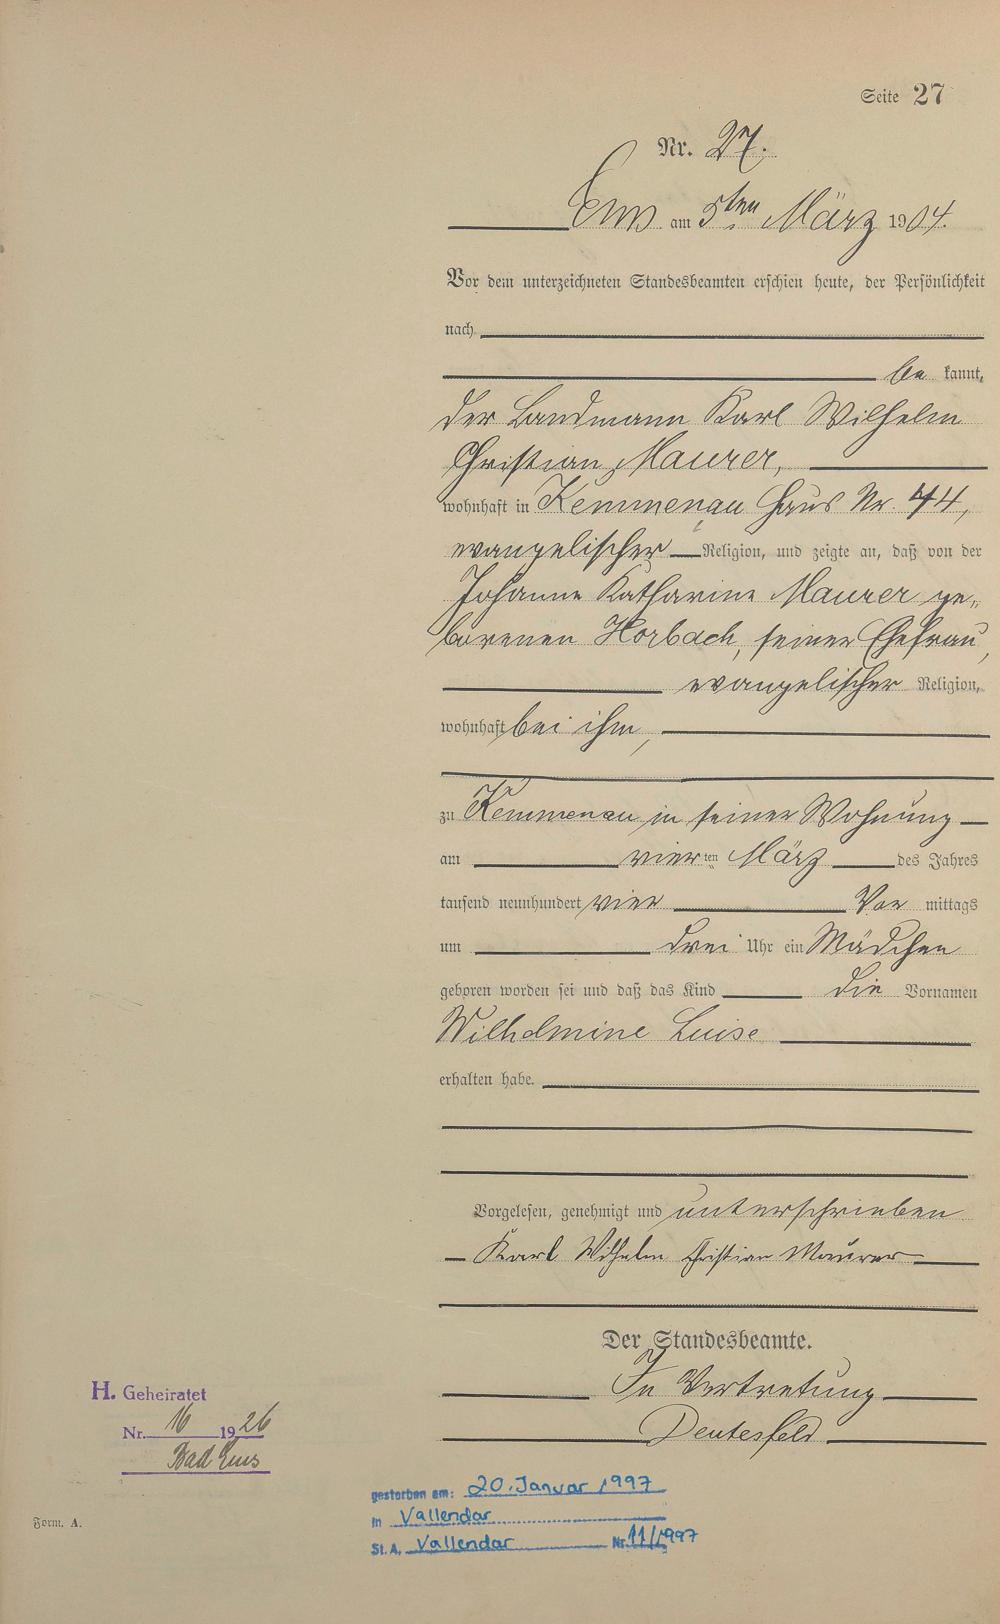 Seite 27
Nr. 27.
Ems am 5ten März 1904.
Vor dem unterzeichneten Standesbeamten erschien heute, der Persönlichkeit
nach
be kannt,
der Landmann Karl Wilhelm
Christian Maurer,
wohnhaft in Kemmenau Haus Nr. 44,
evangelischer Religion, und zeigte an, daß von der
Johanne Katharine Maurer ge-
borenen Horbach, seiner Ehefrau,
evangelischer Religion,
wohnhaft bei ihm,
zu Kemmenau in seiner Wohnung
am vier ten März des Jahres
tausend neunhundert vier Vor mittags
um drei Uhr ein Mädchen
geboren worden sei und daß das Kind die Vornamen
Wilhelmine Luise
erhalten habe.
Vorgelesen, genehmigt und unterschrieben
Karl Wilhelm Christian Maurer
Der Standesbeamte.
In Vertretung
Deutesfeld
H. Geheiratet
Nr. 16 1926
Bad Ems
gestorben am: 20. Januar 1997
in Vallendar
St. A. Vallendar Nr. 11/1997
Form. A.